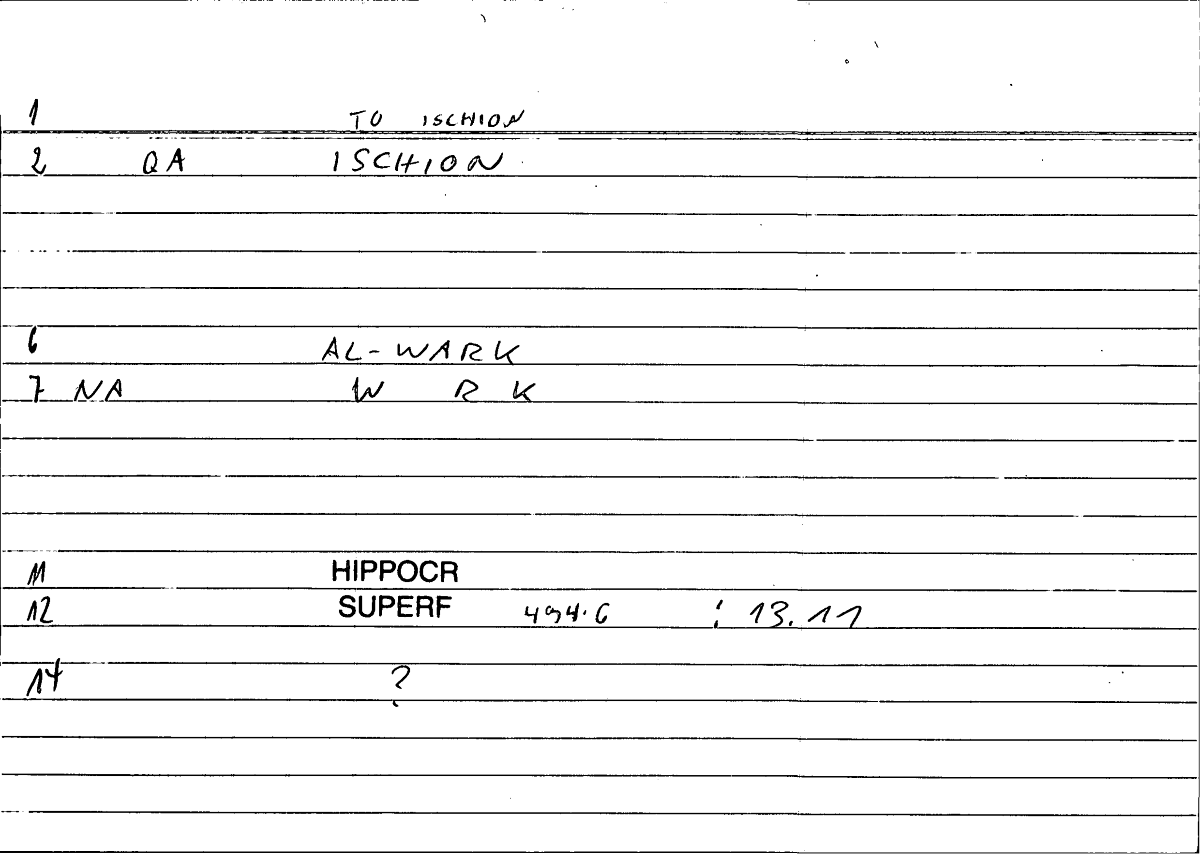 1 TO ISCHION
2 QA ISCHION
6 AL-WARK
7 NA W R K
11 HIPPOCR
12 SUPERF 494.6 : 13.11
14 ?